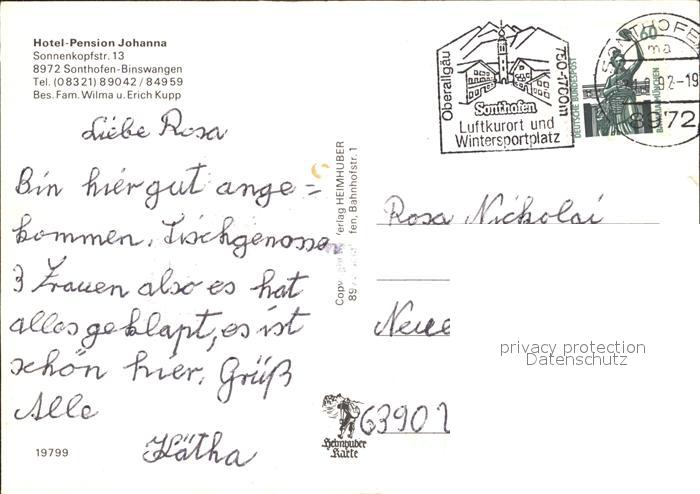 Hotel-Pension Johanna
Sonnenkopfstr. 13
8972 Sonthofen-Binswangen
Tel. (08321) 89042 / 84959
Bes. Fam. Wilma u. Erich Kupp
Liebe Rosa
Bin hier gut ange =
kommen. Tischgenossen
3 Frauen also es hat
alles geklapt, es ist
schön hier. Grüß
Alle
Kätha
19799
Verlag HEIMHUBER
fen, Bahnhofstr. 1
Oberallgäu
750-1700m
Sonthofen
Luftkurort und
Wintersportplatz
SONTHOFEN
92-19
8972
60
DEUTSCHE BUNDESPOST
Rosa Nickolai
Neue
privacy protection
Datenschutz
63901
Heimhuber
Karte